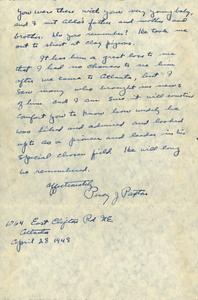 You were there with your very young baby,
and I met Alba's father and mother and
brother. Do you remember? He took me
out to shoot at clay pigeons.
It has been a great loss to me
that I had no chances to see him
after we came to Atlanta, but I
saw many who brought me news
of him and I am sure it will
comfort you to know how widely he
was liked and admired and looked
up to as a pioneer and leader in his
special chosen field. He will long
be remembered.
Affectionately
Percy J Paxton
East Clifton Rd NE
Atlanta
April 28 1948